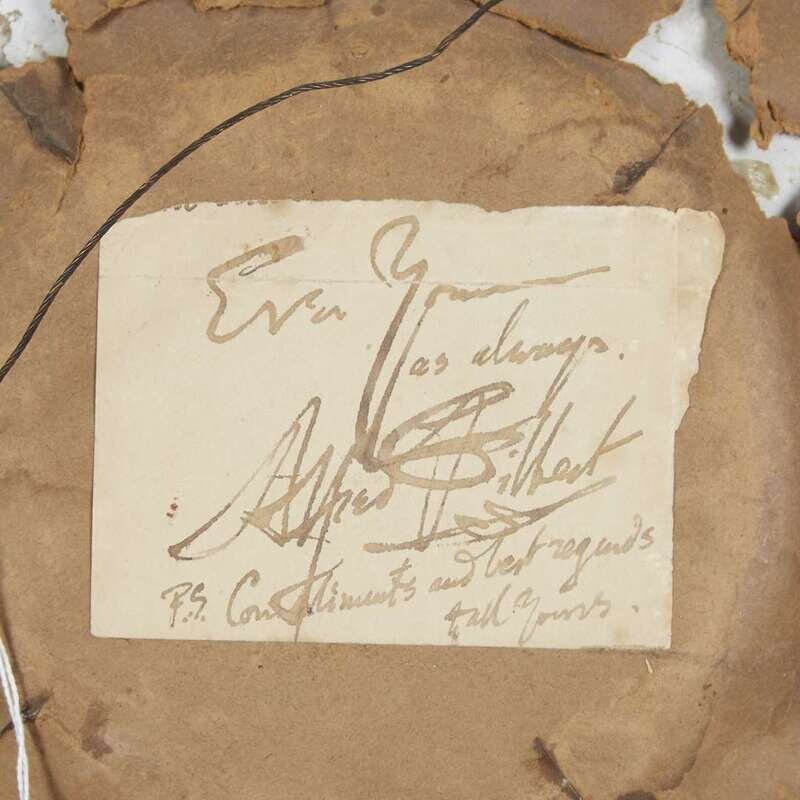 Ever Yours
as always.
Alfred Gilbert
P.S. Compliments and best regards
t all Yours.